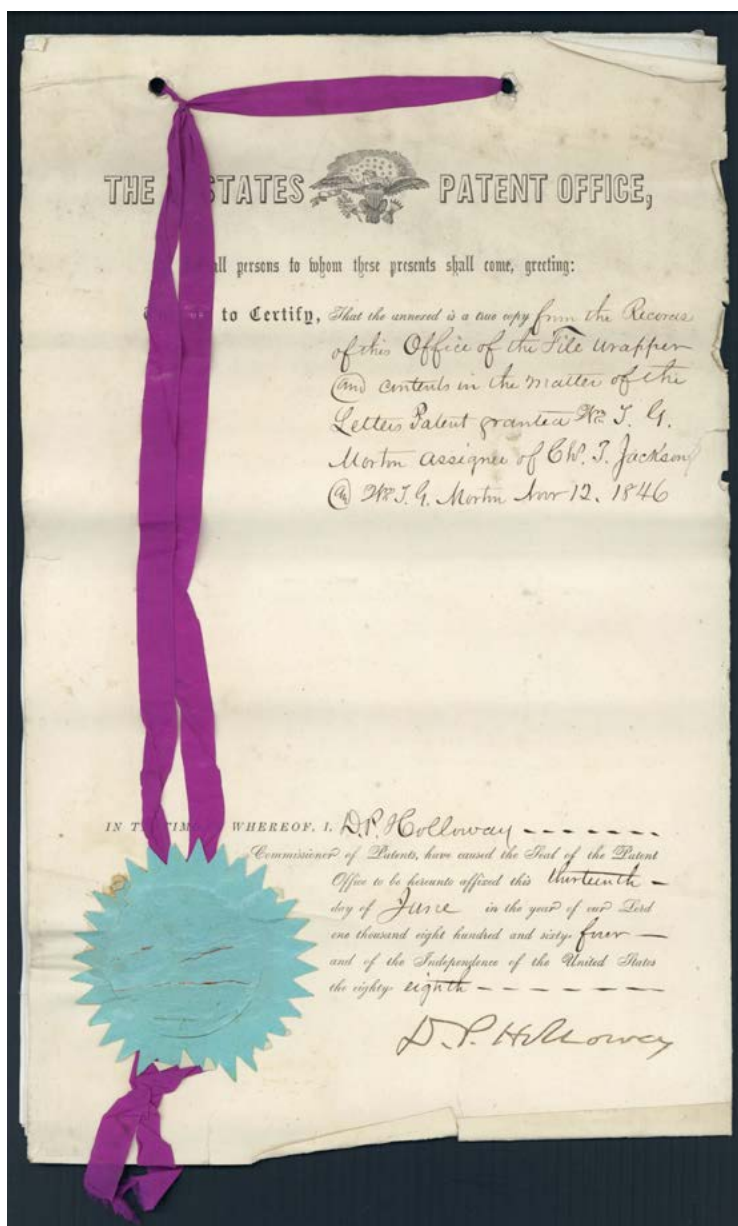 THE STATES PATENT OFFICE,
all persons to whom these presents shall come, greeting:
to Certify, That the annexed is a true copy from the Records
of this Office of the File wrapper
and contents in the matter of the
Letters Patent granted Wm T. G.
Morton assignee of Chs. T. Jackson
Wm T. G. Morton Nov 12. 1846
IN WHEREOF, I, D.P. Holloway
Commissioner of Patents, have caused the Seal of the Patent
Office to be hereunto affixed this thirteenth
day of June in the year of our Lord
one thousand eight hundred and sixty four
and of the Independence of the United States
the eighty eighth
D. P. Holloway